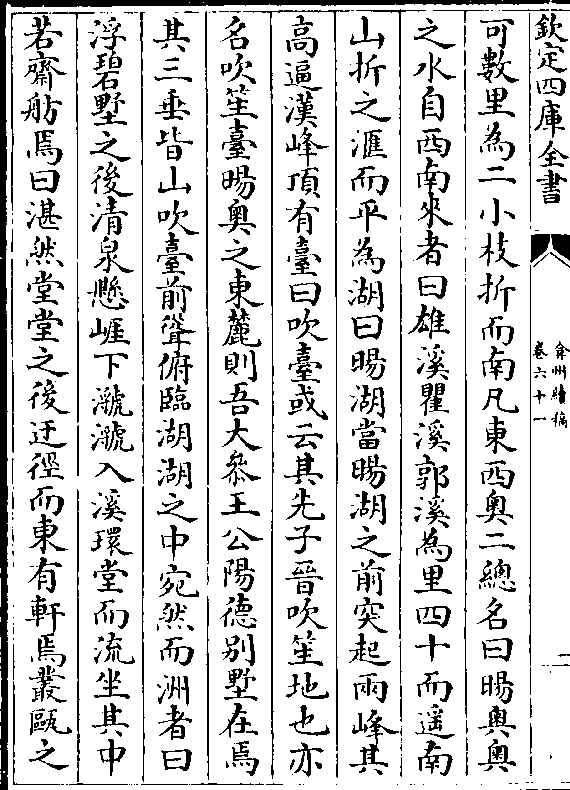 欽定四庫全書
弇州續稿
卷六十一
二
可數里為二小枝折而南凡東西奧二總名曰暘奧奧
之水自西南來者曰雄溪瞿溪郭溪為里四十而遥南
山折之滙而平為湖曰暘湖當暘湖之前突起兩峰其
高逼漢峰頂有臺曰吹臺或云其先子晉吹笙地也亦
名吹笙臺暘奧之東麓則吾大叅王公陽德别墅在焉
其三垂皆山吹臺前聳俯臨湖湖之中宛然而洲者曰
浮碧墅之後清泉懸崖下㶁㶁入溪環堂而流坐其中
若齋舫焉曰湛然堂堂之後迂徑而東有軒焉叢甌之